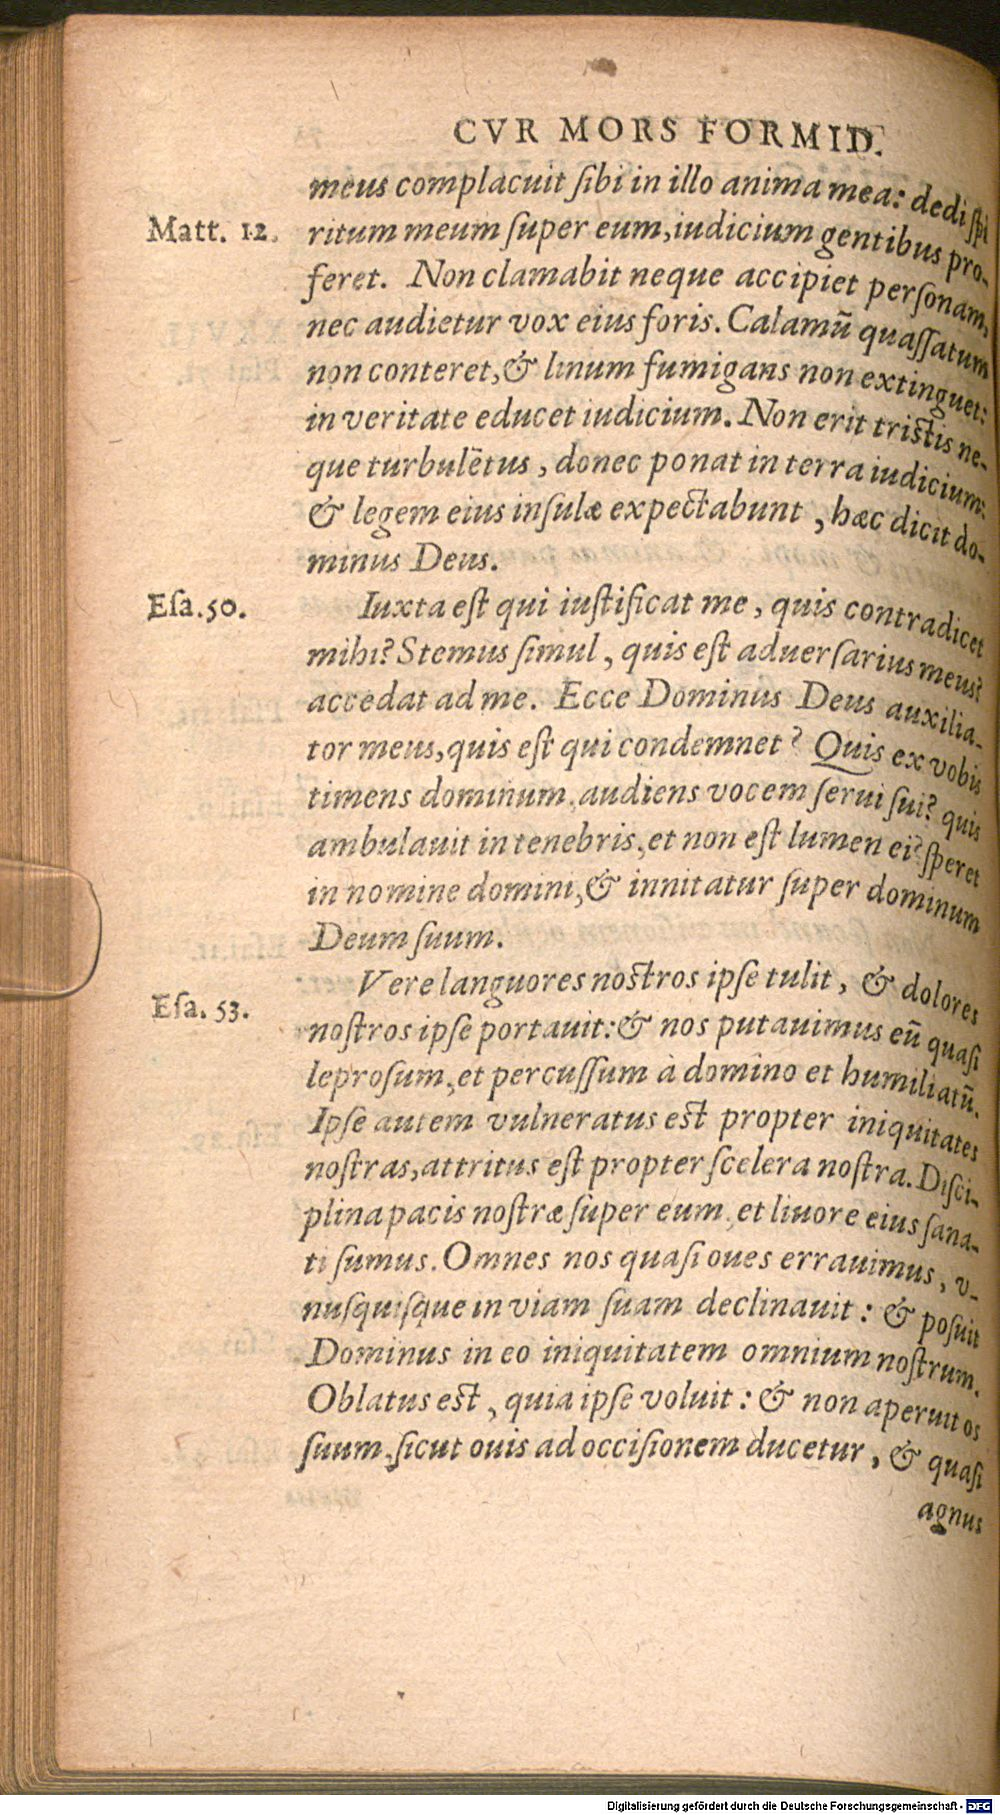 CVR MORS FORMID.
meus complacuit ſibi in illo anima mea: dedi ſpi
Matt. 12. ritum meum ſuper eum, iudicium gentibus pro-
feret. Non clamabit neque accipiet perſonam,
nec audietur vox eius foris. Calamū quaſſatum
non conteret, & linum fumigans non extinguet:
in veritate educet iudicium. Non erit triſtis ne-
que turbulētus, donec ponat in terra iudicium:
& legem eius inſulæ expectabunt, hæc dicit do-
minus Deus.
Eſa. 50. Iuxta eſt qui iuſtificat me, quis contradicet
mihi? Stemus ſimul, quis eſt aduerſarius meus?
accedat ad me. Ecce Dominus Deus auxilia-
tor meus, quis eſt qui condemnet? Quis ex vobis
timens dominum, audiens vocem ſerui ſui? quis
ambulauit in tenebris, et non eſt lumen ei? ſperet
in nomine domini, & innitatur ſuper dominum
Deum ſuum.
Vere languores noſtros ipſe tulit, & dolores
Eſa. 53. noſtros ipſe portauit: & nos putauimus eū quaſi
leproſum, et percuſſum à domino et humiliatū.
Ipſe autem vulneratus eſt propter iniquitates
noſtras, attritus eſt propter ſcelera noſtra. Diſci-
plina pacis noſtræ ſuper eum, et liuore eius ſana-
ti ſumus. Omnes nos quaſi oues errauimus, v-
nuſquiſque in viam ſuam declinauit: & poſuit
Dominus in eo iniquitatem omnium noſtrum.
Oblatus eſt, quia ipſe voluit: & non aperuit os
ſuum, ſicut ouis ad occiſionem ducetur, & quaſi
agnus
Digitalisierung gefördert durch die Deutsche Forschungsgemeinschaft - DFG